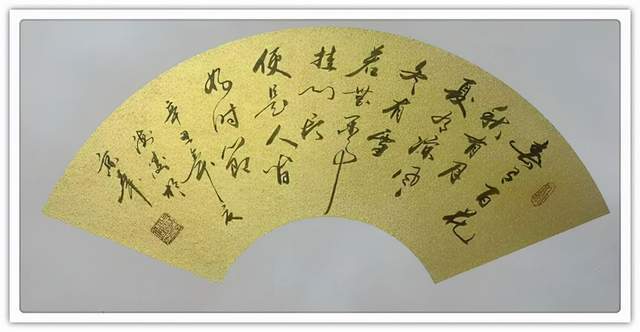 春有百花
秋有月
夏有凉风
冬有雪
若無闲事
挂心头
便是人间
好时节
辛丑年夏
书於